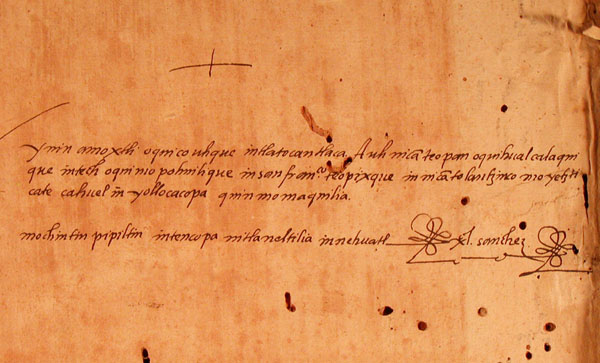 ynin amoxtli oquicouhque intlatocantlaca. Auh nicã teopan oquihualcalaqui
que intech oquinio pohuilique in san franco teopixque in nicã tolantzinco moyetzti
cate cahuel in yollocacopa quinmomaquilia.
mochintin pipiltin intencopa nitlaneltilia innehuatl sanchez